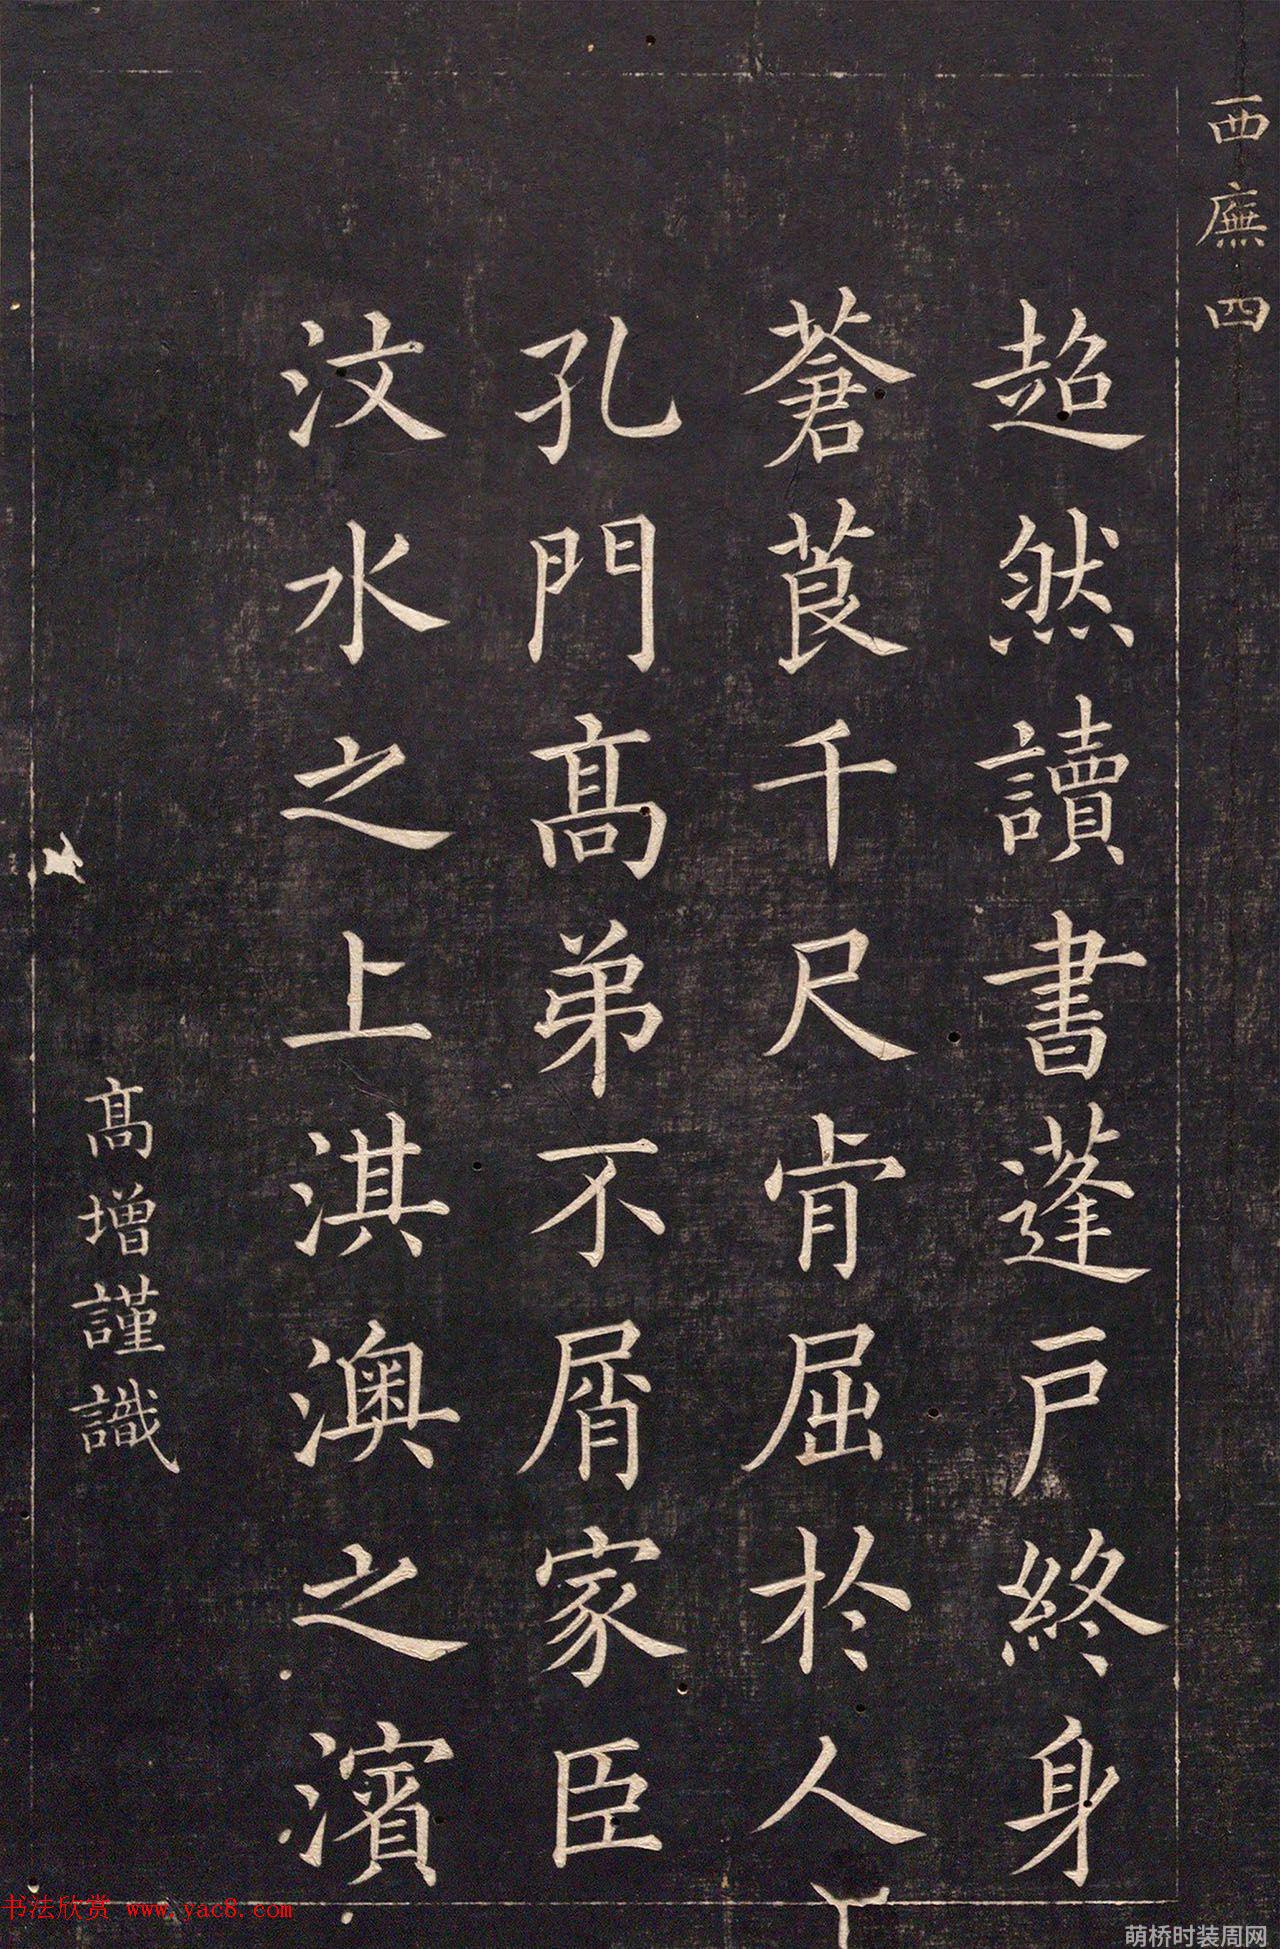 西廡四
超然讀書蓬戶終身
蒼莨千尺肯屈於人
孔門高弟不屑家臣
汶水之上淇澳之濱
高增謹識
书法欣赏 www.yac8.com
萌桥时装周网